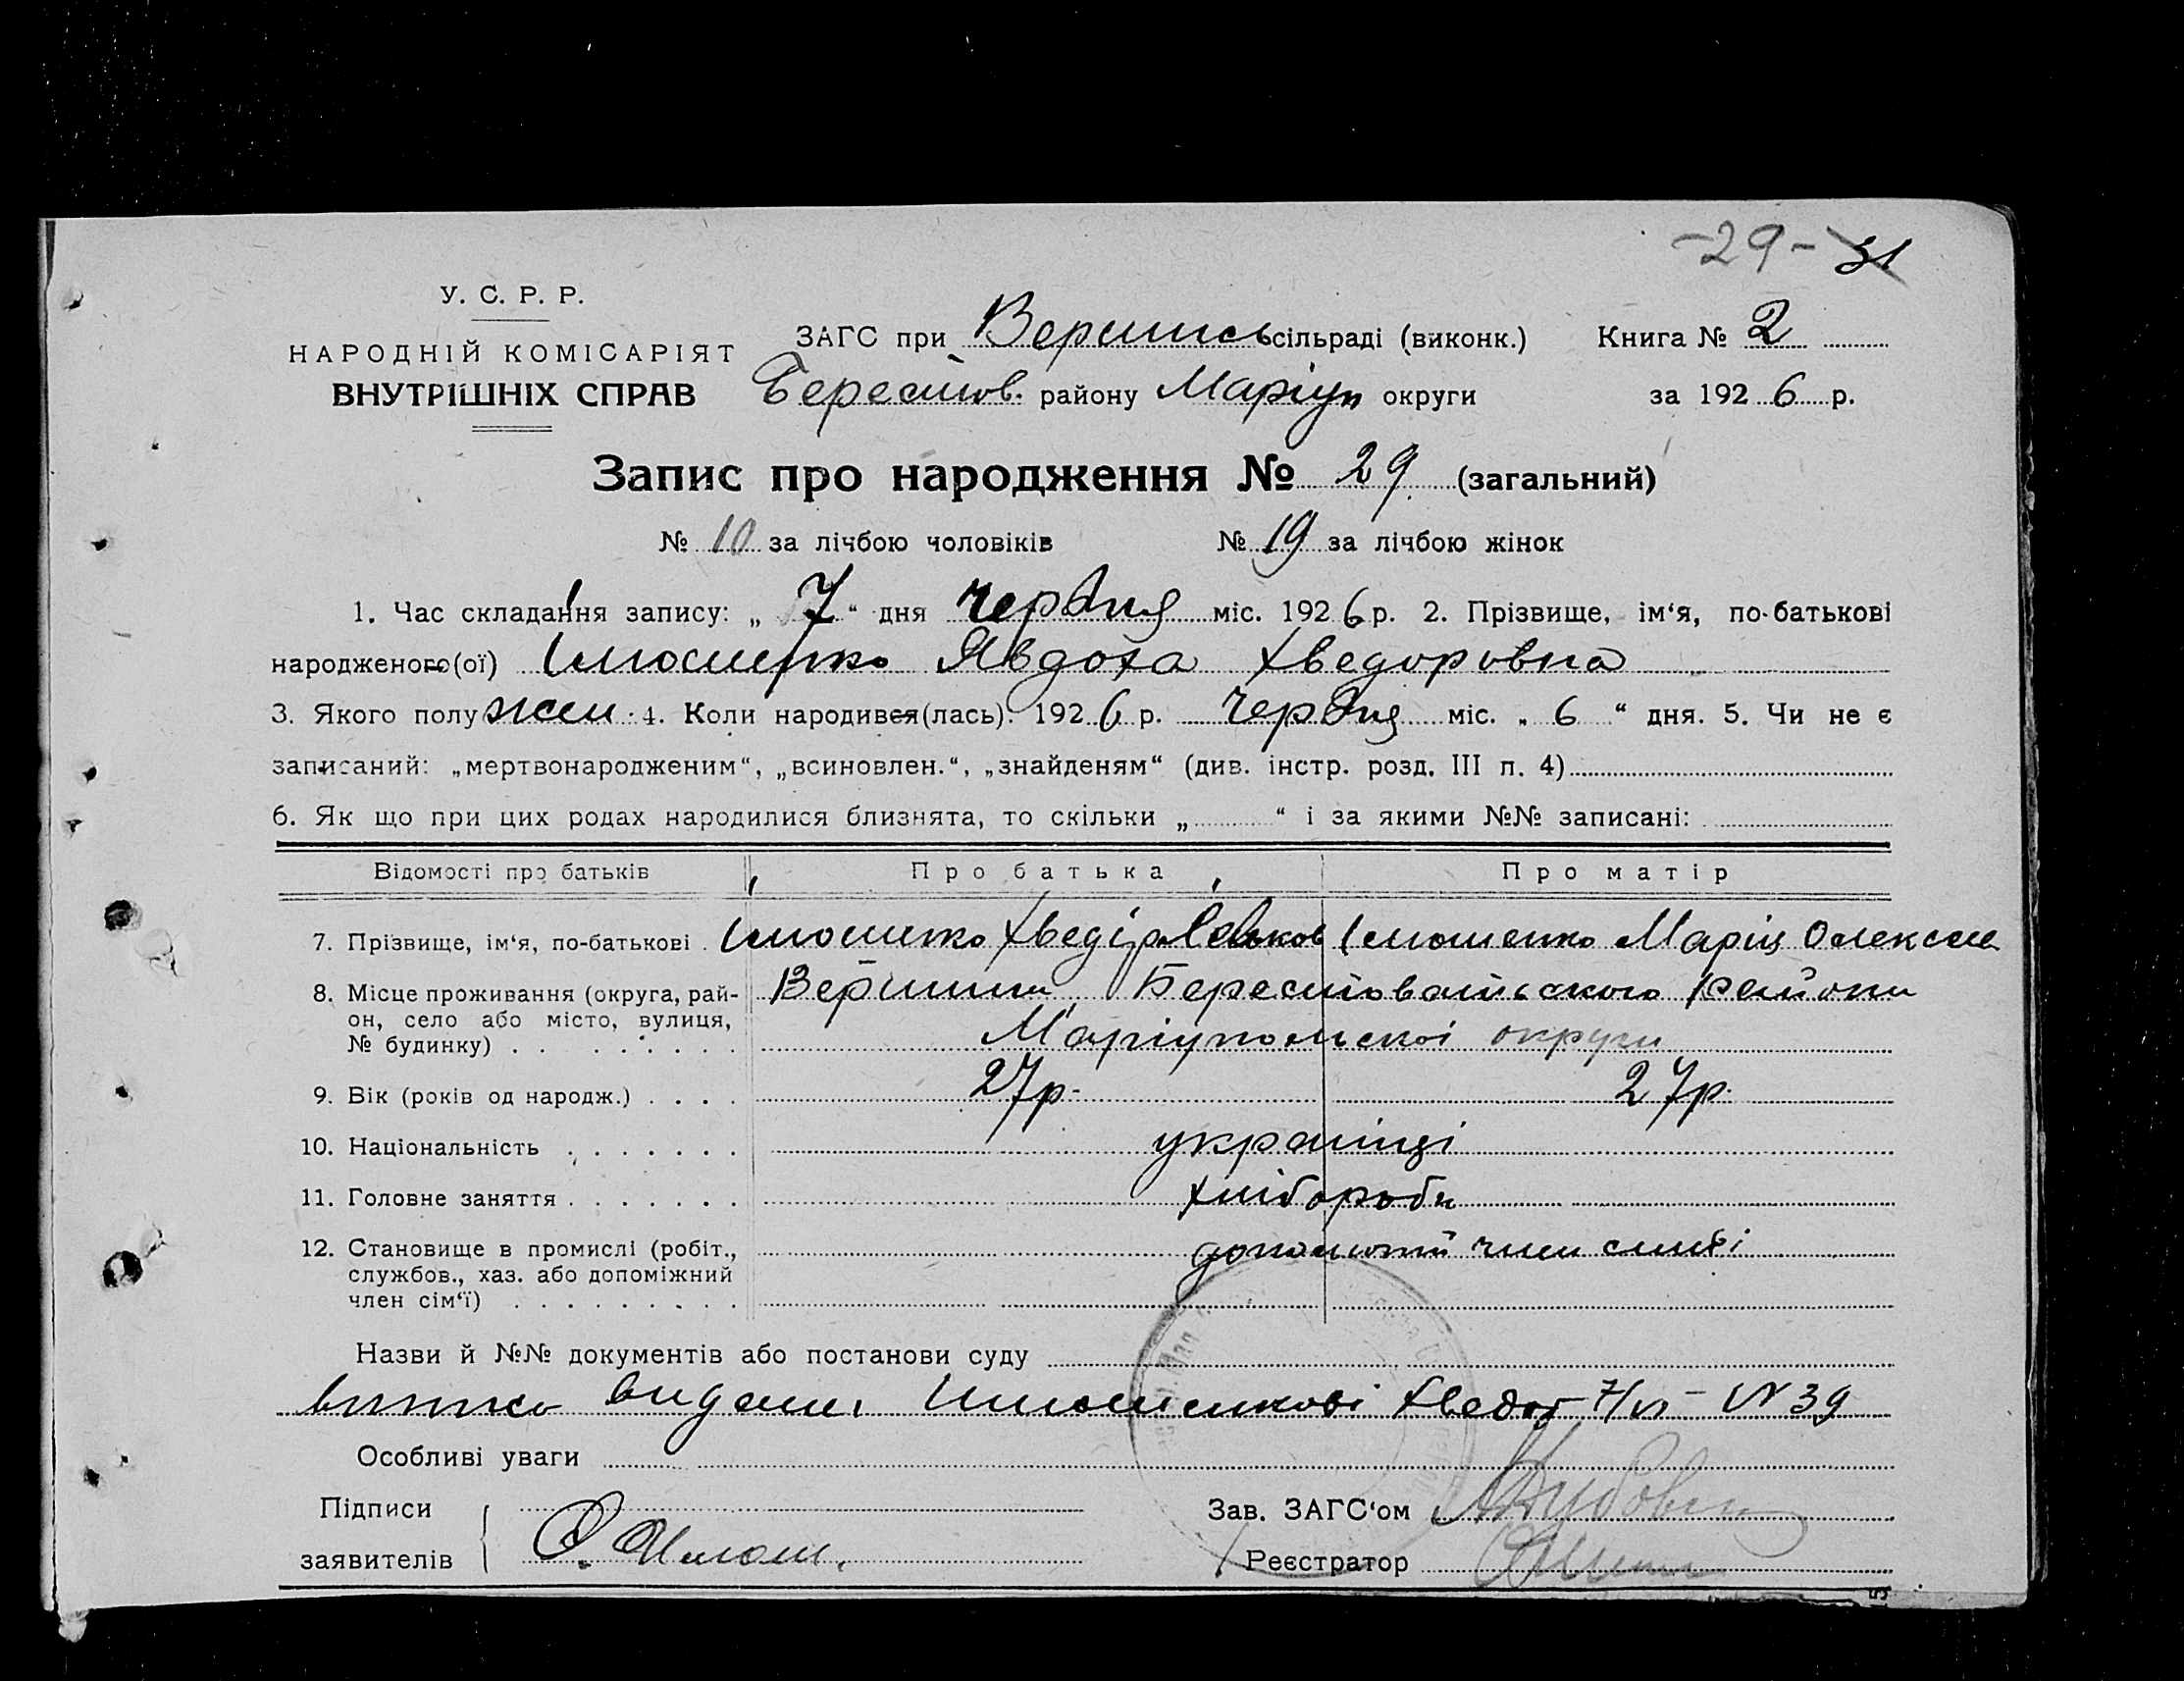 -29- 31
У. С. Р. Р.
НАРОДНІЙ КОМІСАРІЯТ
ВНУТРІШНІХ СПРАВ
ЗАГС при Вершись сільраді (виконк.) Книга № 2
Берестов. району Маріуп округи за 1926 р.
Запис про народження № 29 (загальний)
№ 10 за лічбою чоловіків № 19 за лічбою жінок
1. Час складання запису: „ 7 “ дня червня міс. 1926 р. 2. Прізвище, ім‘я, по-батькові
народженого(ої) Явдоха Хведоровна
3. Якого полу жін. 4. Коли народився(лась). 1926 р. червня міс. „ 6 “ дня. 5. Чи не є
записаний: „мертвонародженим“, „всиновлен.“, „знайденям“ (див. інстр. розд. III п. 4)
6. Як що при цих родах народилися близнята, то скільки „ “ і за якими №№ записані:
Відомості про батьків Про батька Про матір
7. Прізвище, ім‘я, по-батькові Хведір Левков Марія Олексів
8. Місце проживання (округа, рай-
он, село або місто, вулиця,
№ будинку)
Вершини Берестоватського району
Маріупольскоі округи
9. Вік (років од народж.) 27р. 27р.
10. Національність українці
11. Головне заняття хлібороби
12. Становище в промислі (робіт.,
службов., хаз. або допоміжний
член сім‘ї)
члени сімъі
Назви й №№ документів або постанови суду
видана Хведор 7/VI - № 39
Особливі уваги
Підписи
заявителів
Зав. ЗАГС‘ом
Реєстратор